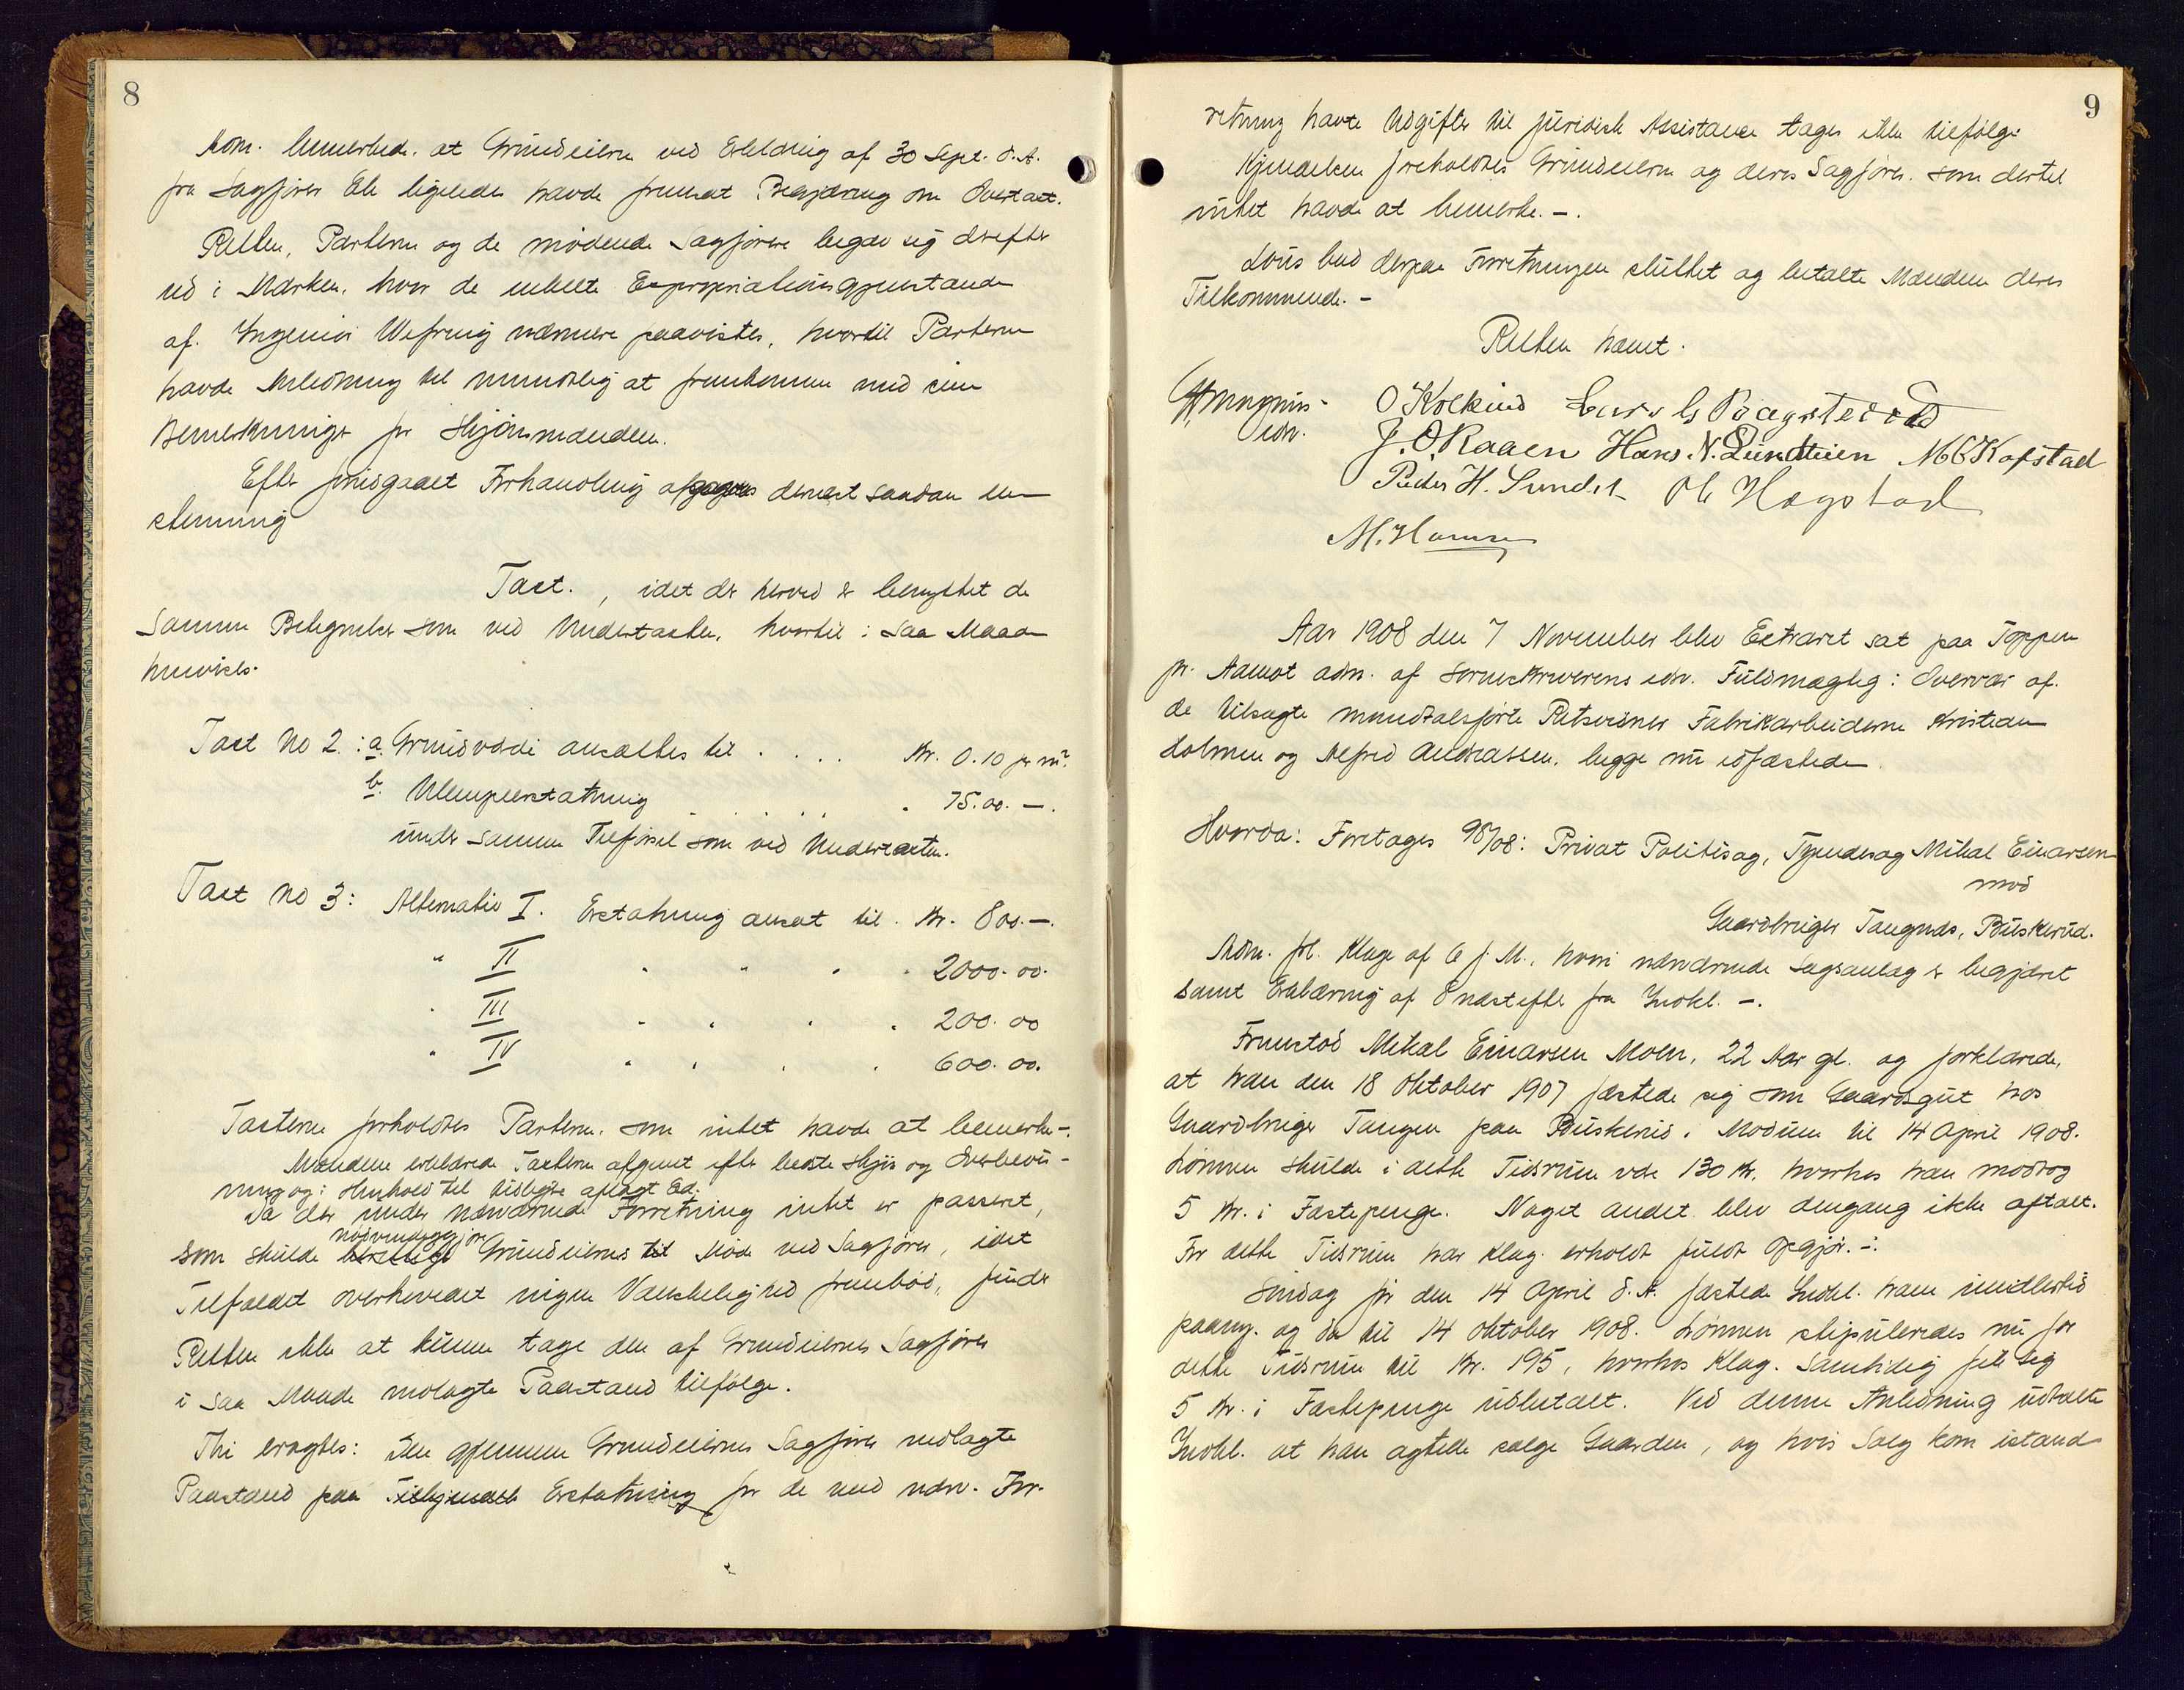 8
Adm. bemerkede at Grundeierne ved Erklæring af 30 Sept. d.A.
fra Sagfører Ek ligeledes havde fremsat Begjæring om Overtaxt.
Retten, Parterne og de mødende Sagførere begav sig derefter
ud i Marken, hvor de enkelte Expropriationsgjenstande
af Ingeniør Wefring nærmere paavistes, hvortil Parterne
havde Anledning til mundtlig at fremkomme med sine
Bemerkninger for Skjønsmændene.
Efter foregaaet Forhandling afgaves dernæst saadan en
stemmig
Taxt. , idet der herved er benyttet de
samme Betegnelser som ved Undertaxten, hvortil i saa Maade
henvises.
Taxt No 2: a. Grundværdi ansættes til . . . . Kr. 0.10 pr m².
b. Ulempeerstatning . . . . 75.00.—.
under samme Tilførsel som ved Undertaxten.
Taxt No 3: Alternativ I. Erstatning ansat til . Kr. 800.—.
" II " " " . 2000.00.
" III " " " . 200.00
" IV " " " . 600.00.
Taxterne foreholdtes Parterne, som intet havde at bemerke.—.
Mændene erklærede Taxterne afgivet efter bedste Skjøn og Overbevis-
ning og i Henhold til tidligere aflagt Ed.
Da der under nærværende Forretning intet er passeret,
nødvendiggjøre
som skulde Grundeiernes Møde ved Sagfører, idet
Tilfældet overhovedet ingen Vanskelighed frembød, finder
Retten ikke at kunne tage den af Grundeiernes Sagfører
i saa Maade nedlagte Paastand tilfølge.
Thi eragtes: Den gjennem Grundeiernes Sagfører nedlagte
Paastand paa Tilkjendelse Erstatning for de ved nærv. For-
9
retning havte Udgifter til juridisk Assistance tages ikke tilfølge
Kjendelsen foreholdtes Grundeierne og deres Sagfører, som dertil
intet havde at bemerke.—.
Lovis bød derpaa Forretningen sluttet og betalte Mændene deres
Tilkommende.—
Retten hævet.
edv.
O Kolkind Lars
J. O. Raaen Hans N. Lundteien M C Kopstad
Peder H. Sundet Ole Hagstad
M. Hansen
Aar 1908 den 7 November blev Extraret sat paa Toppen
pr. Aamot adm. af Sorenskriverens edsv. Fuldmægtig i Overvær af
de tilsagte mandtalsførte Retsvidner Fabrikarbeiderne Kristian
Holmen og Alfred Andreassen, begge nu edfæstede.
Hvorda: Foretages 98/08: Privat Politisag, Tyendesag Mikal Einarsen
mod
Gaardbruger Tangnæs, Buskerud.
Adm. frl. Klage af 6 f.M., hvori nærværende Sagsanlæg er begjæret
samt Erklæring af 8 næstefter fra Indkl.—.
Fremstod Mikal Einarsen Moen, 22 Aar gl. og forklarede,
at han den 18 Oktober 1907 fæstede sig som Gaardsgut hos
Gaardbruger Tangen paa Buskerud i Modum til 14 April 1908.
Lønnen skulde i dette Tidsrum være 130 Kr, hvorhos han modtog
5 Kr. i Fæstepenge. Noget andet blev dengang ikke aftalt.
For dette Tidsrum har Klag. erholdt fuldt Opgjør.—.
Søndag før den 14 April d.A. fæstede Indkl. ham imidlertid
paany og da til 14 Oktober 1908. Lønnen stipuleredes nu for
dette Tidsrum til Kr. 195, hvorhos Klag. samtidig fik sig
5 Kr. i Fæstepenge udbetalt. Ved denne Anledning udtalte
Indkl. at han agtede sælge Gaarden, og hvis Salg kom istand